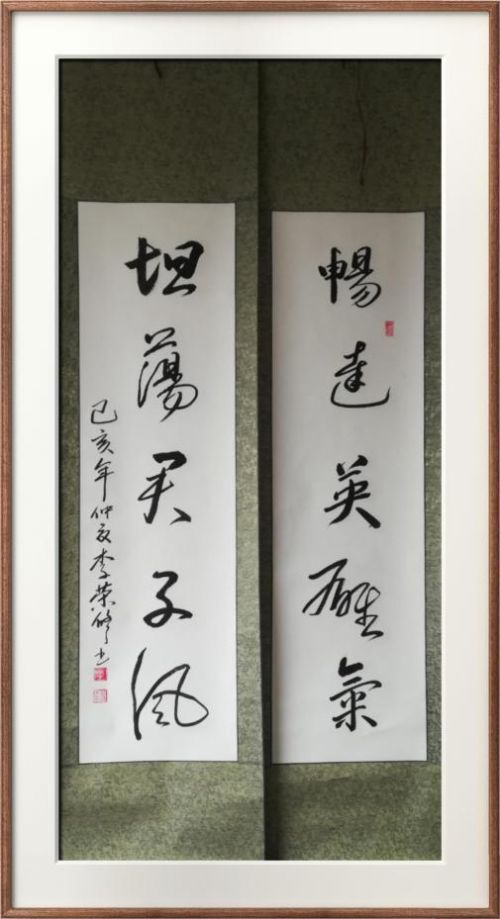 暢達英雄氣
坦蕩君子風
己亥年仲夏李荣修书